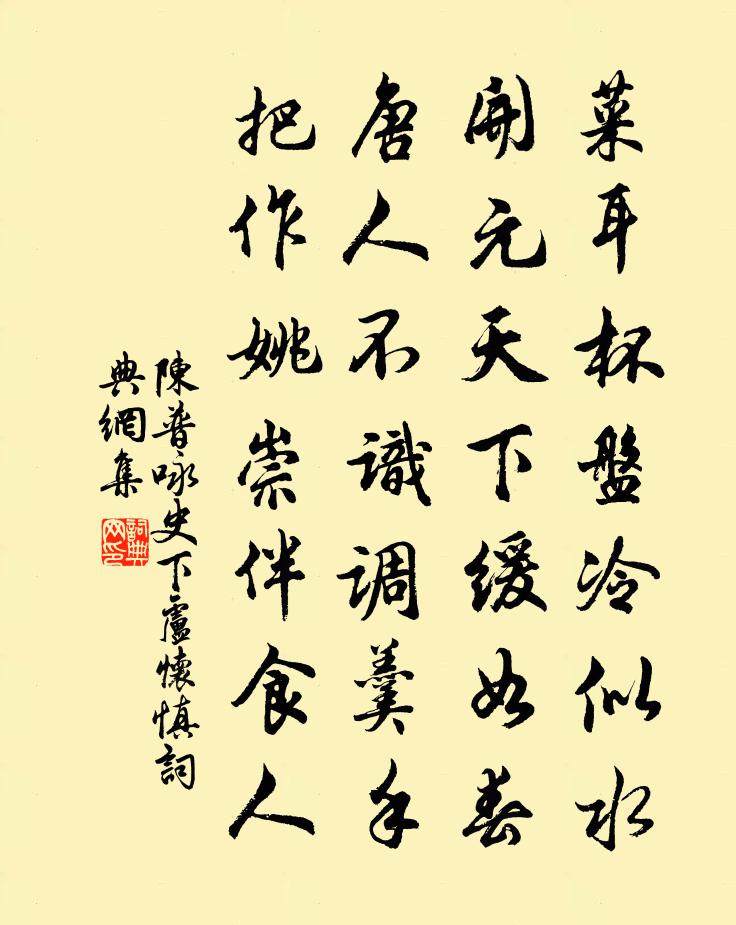 菜耳杯盤冷似水
開元天下緩如春
唐人不識調羹手
把作姚崇伴食人
陳普咏史下盧懷慎詞
典網集
詞典
网印